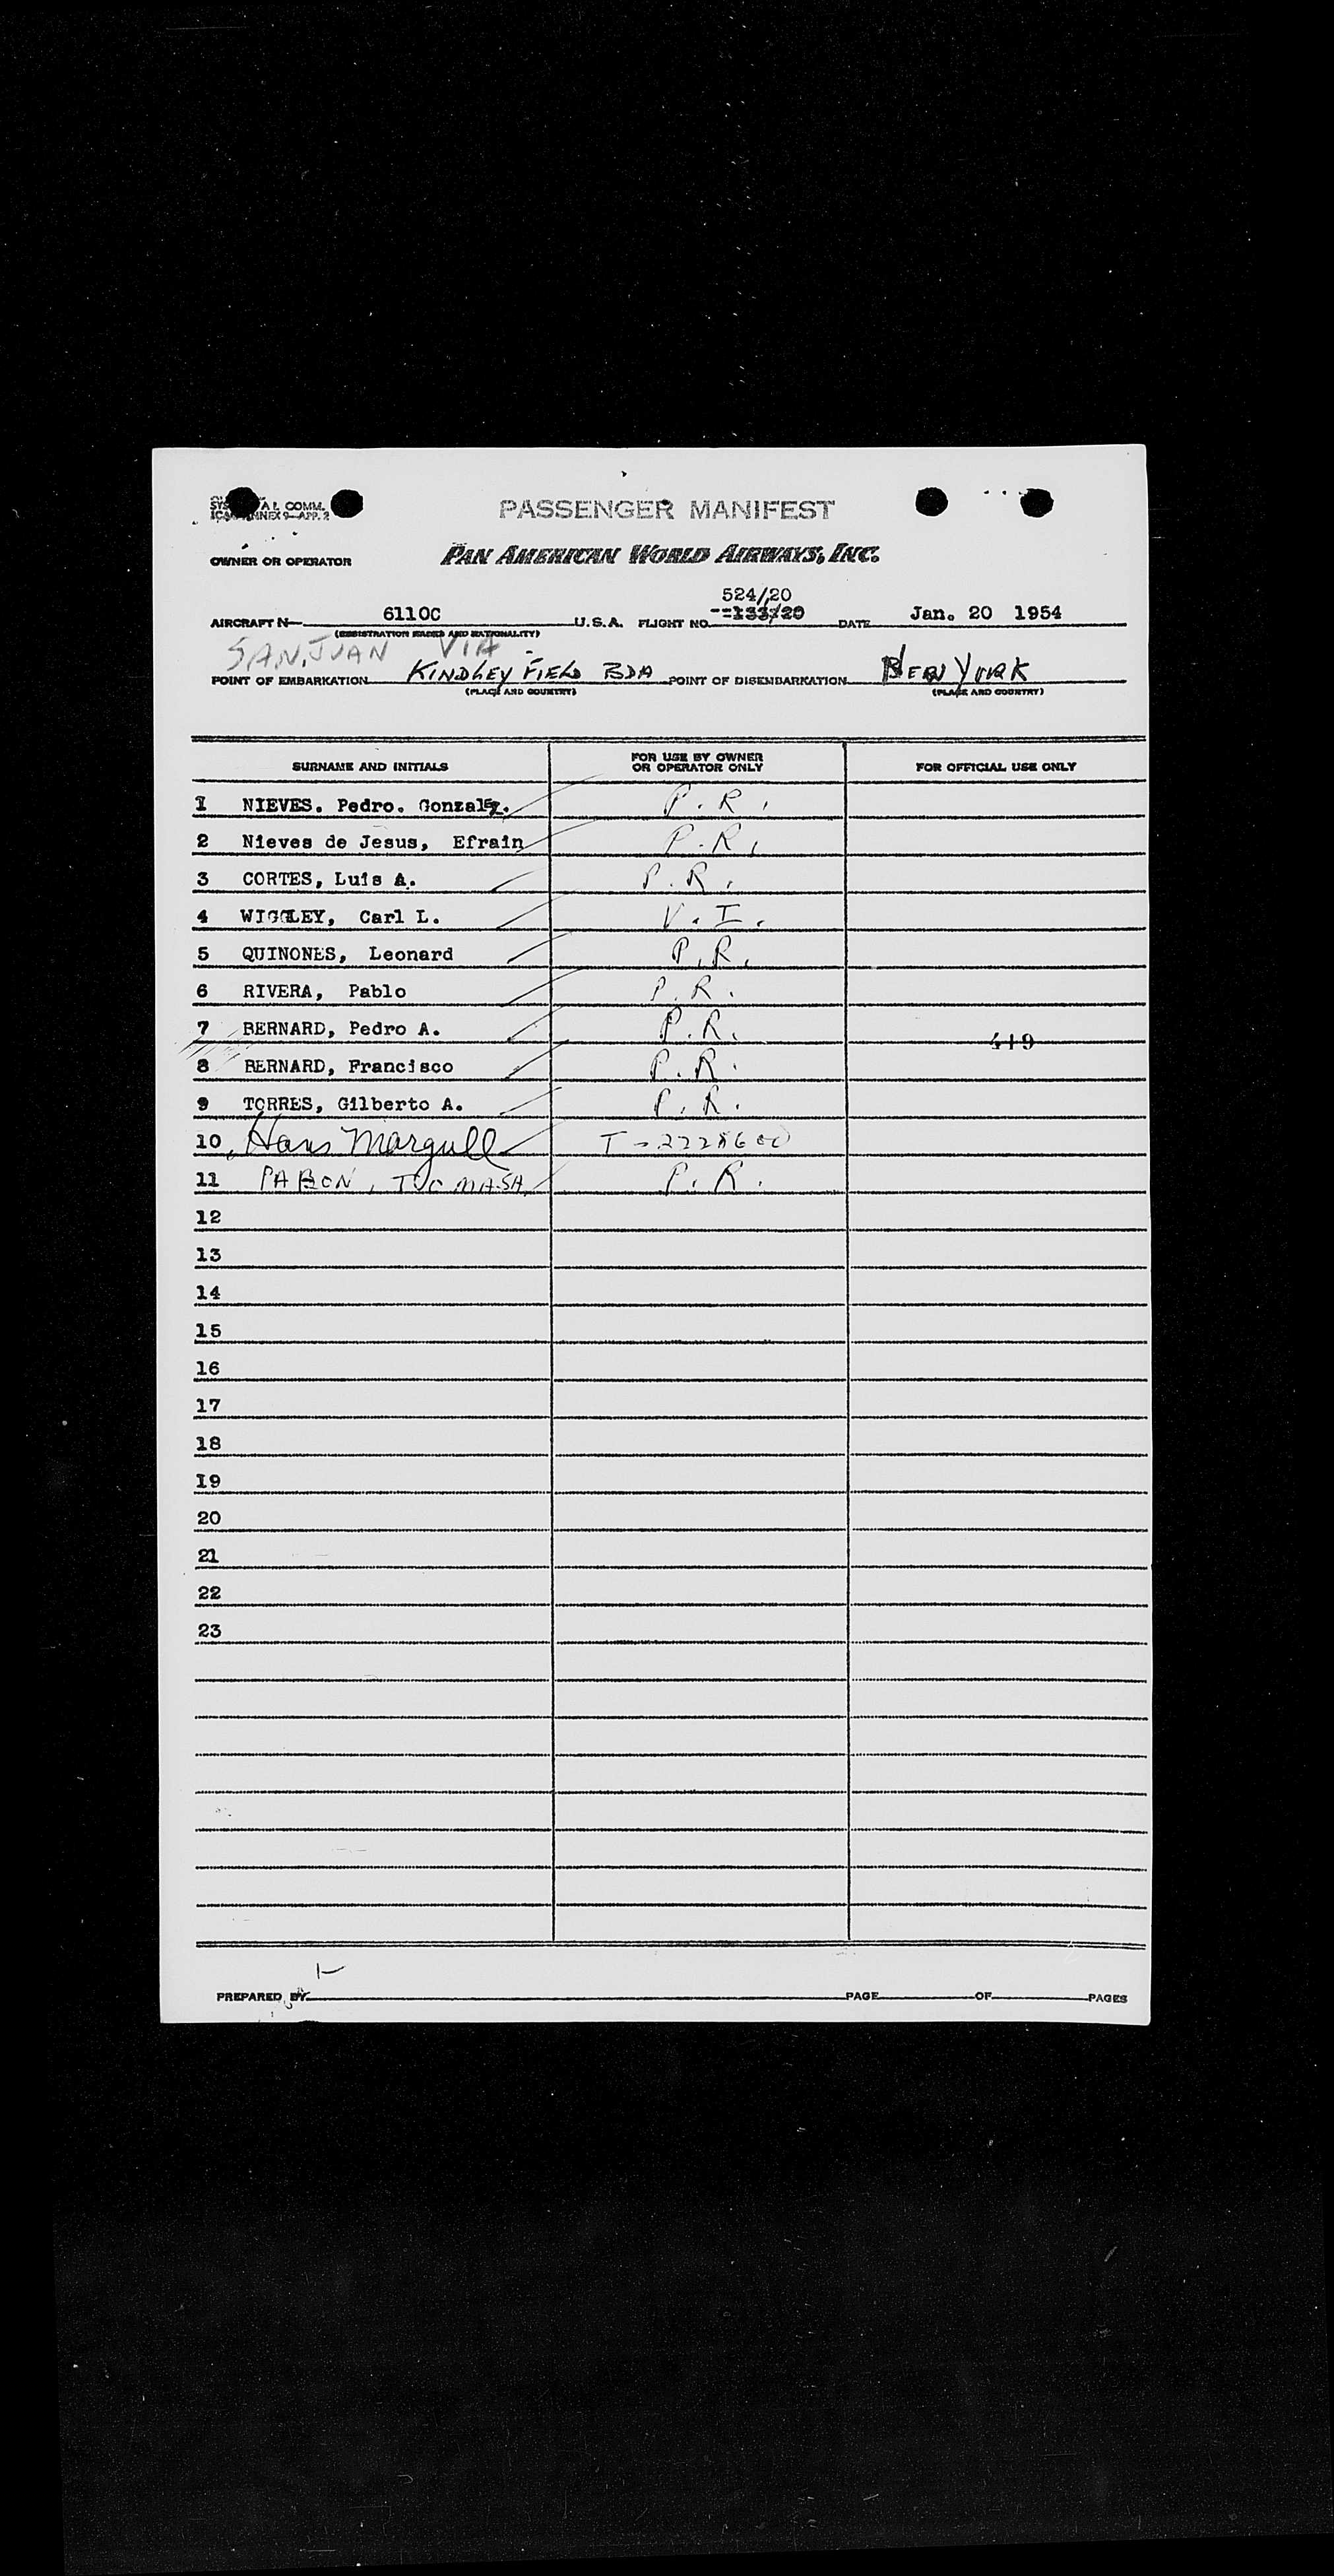 SYS AL COMM.
ICAO ANNEX 9—APP. 2
PASSENGER MANIFEST
OWNER OR OPERATOR PAN AMERICAN WORLD AIRWAYS, INC.
524/20
AIRCRAFT N— 6110C U.S.A. FLIGHT NO. --133/20 DATE Jan. 20 1954
(REGISTRATION MARKS AND NATIONALITY)
SAN JUAN VIA
POINT OF EMBARKATION KINDLEY FIELD BDA POINT OF DISEMBARKATION NEW YORK
(PLACE AND COUNTRY) (PLACE AND COUNTRY)
SURNAME AND INITIALS FOR USE BY OWNER OR OPERATOR ONLY FOR OFFICIAL USE ONLY
1 NIEVES. Pedro. Gonzalez. P.R.
2 Nieves de Jesus, Efrain P.R.
3 CORTES, Luis A. P.R.
4 WIGGLEY, Carl L. V.I.
5 QUINONES, Leonard P.R.
6 RIVERA, Pablo P.R.
7 BERNARD, Pedro A. P.R.
419
8 BERNARD, Francisco P.R.
9 TORRES, Gilberto A. P.R.
10 Hans Margull T-2228600
11 PABON, P.R.
12
13
14
15
16
17
18
19
20
21
22
23
PREPARED BY PAGE OF PAGES